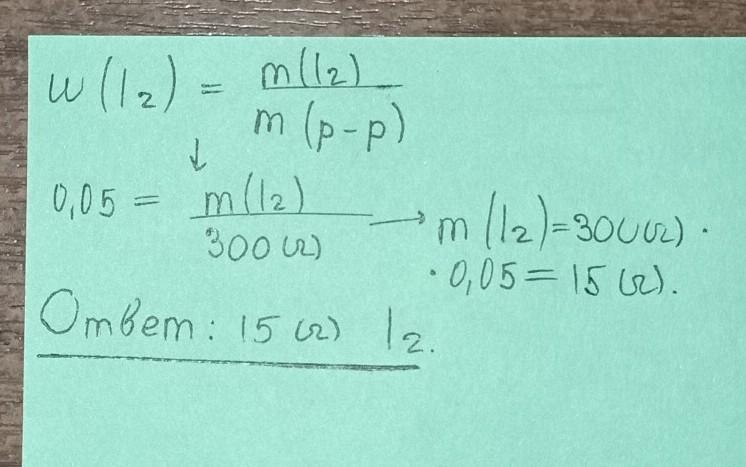 w(I₂) = m(I₂) / m(р-р)
↓
0,05 = m(I₂) / 300(г) → m(I₂)=300(г) ·
· 0,05 = 15 (г).
Ответ: 15 (г) I₂.